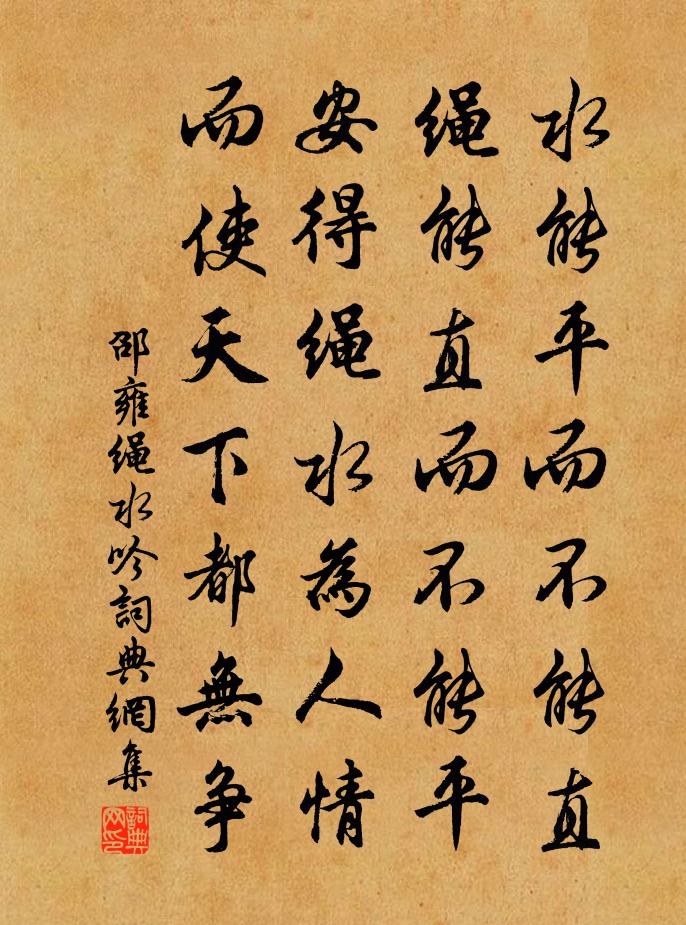 水能平而不能直
绳能直而不能平
安得绳水為人情
而使天下都無争
邵雍绳水吟詞典網集
詞典网印